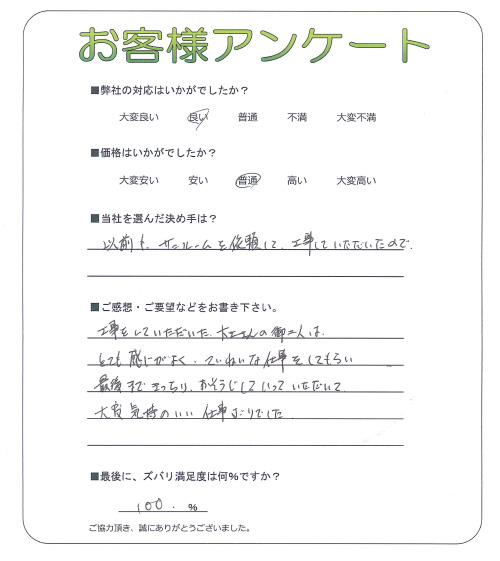 お客様アンケート
■弊社の対応はいかがでしたか？
大変良い 良い 普通 不満 大変不満
■価格はいかがでしたか？
大変安い 安い 普通 高い 大変高い
■当社を選んだ決め手は？
以前も、サンルームを依頼して、工事していただいたので、
■ご感想・ご要望などをお書き下さい。
工事をしていただいた、大工さんの御二人は、
とても感じがよく、ていねいな仕事をしてもらい
最後まできっちり、おそうじしていっていただいて
大変気持のいい仕事ぶりでした
■最後に、ズバリ満足度は何%ですか？
100. %
ご協力頂き、誠にありがとうございました。